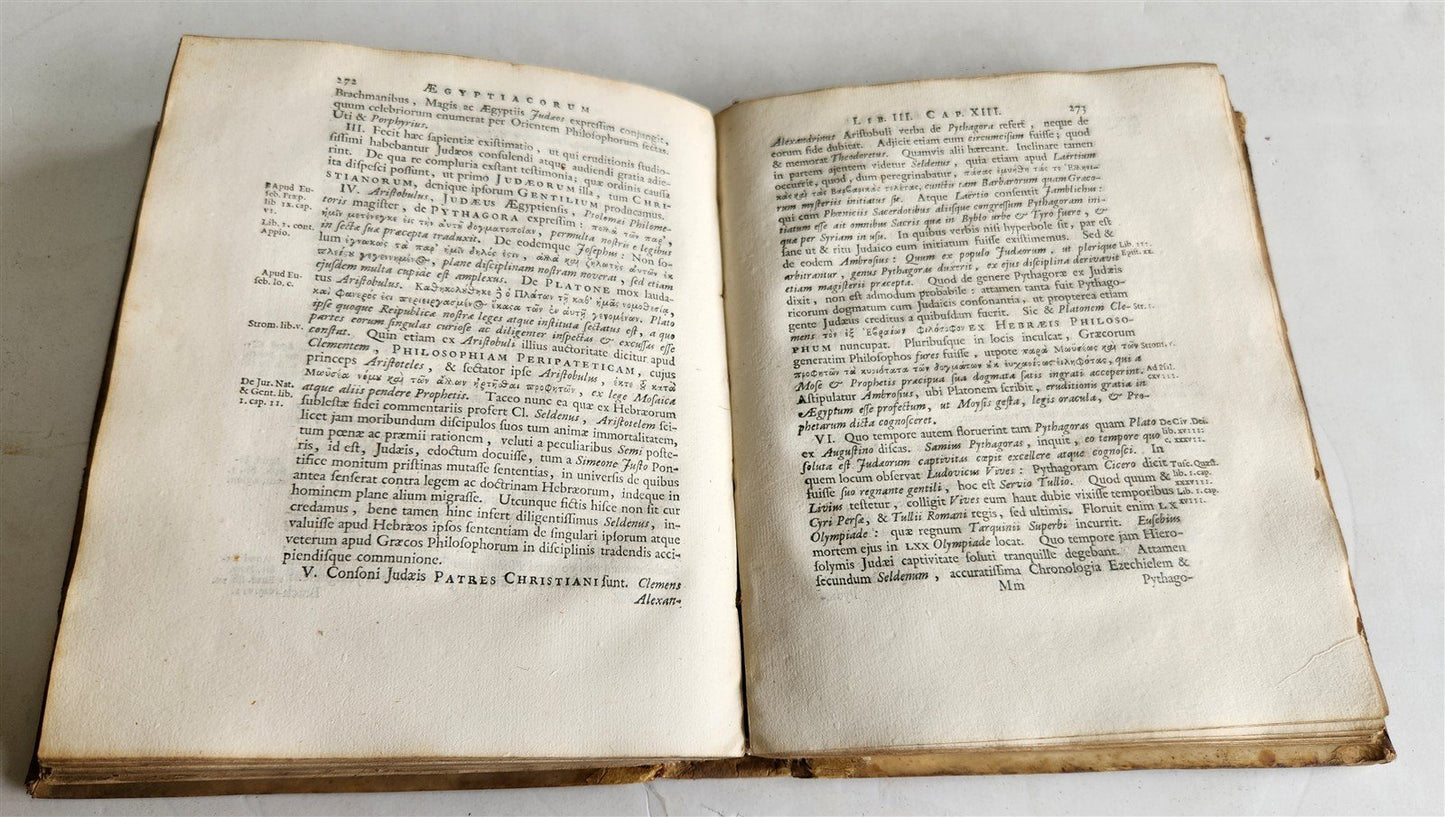 272
ÆGYPTIACORUM
Brachmanibus, Magis ac Ægyptiis Judæos expressim conjungit,
quum celebriorum enumerat per Orientem Philosophorum sectas.
Uti & Porphyrius.
III. Fecit hæc sapientiæ existimatio, ut qui eruditionis studio-
sissimi habebantur Judæos consulendi atque audiendi gratia adie-
rint. De qua re compluria exstant testimonia; quæ ordinis caussa
ita dispesci possunt, ut primo JUDÆORUM illa, tum CHRI-
STIANORUM, denique ipsorum GENTILIUM producamus.
IV. Aristobulus, JUDÆUS Ægyptiensis, Ptolemæi Philome-
toris magister, de PYTHAGORA expressim: πολλὰ τῶν παρ'
ἡμῖν μετένεγκε εἰς τὴν αὑτῦ δογματοποιίαν, permulta nostris e legibus
in sectæ suæ præcepta traduxit. De eodemque Josephus: Non so-
lum ἐγνωκὼς τὰ παρ' ἡμῖν δῆλός ἐςιν, ἀλλὰ καὶ ζηλωτὴς αὐτῶν ἐκ
πλείςυ γεγενημένος, plane disciplinam nostram noverat, sed etiam
ejusdem multa cupide est amplexus. De PLATONE mox lauda-
tus Aristobulus. Κατηκολύθηκε ὁ Πλάτων τῇ καθ' ἡμᾶς νομοθεσίᾳ,
καὶ Φανερός ἐςι περιειργασμένος ἕκαςα τῶν ἐν αὐτῇ γενομένων. Plato
ipse quoque Reipublicæ nostræ leges atque instituta sectatus est, a quo
partes eorum singulas curiose ac diligenter inspectas & excussas esse
constat. Quin etiam ex Aristobuli illius auctoritate dicitur apud
Clementem, PHILOSOPHIAM PERIPATETICAM, cujus
princeps Aristoteles, & sectator ipse Aristobulus, ἐκ τῦ κατὰ
Μωυσέα νόμυ καὶ τῶν ἄλλων ἠρτῆσθαι προφητῶν, ex lege Mosaica
atque aliis pendere Prophetis. Taceo nunc ea quæ ex Hebræorum
sublestæ fidei commentariis profert Cl. Seldenus, Aristotelem sci-
licet jam moribundum discipulos suos tum animæ immortalitatem,
tum pœnæ ac præmii rationem, veluti a peculiaribus Semi poste-
ris, id est, Judæis, edoctum docuisse, tum a Simeone Justo Pon-
tifice monitum pristinas mutasse sententias, in universis de quibus
antea senserat contra legem ac doctrinam Hebræorum, indeque in
hominem plane alium migrasse. Utcunque fictis hisce non sit cur
credamus, bene tamen hinc infert diligentissimus Seldenus, in-
valuisse apud Hebræos ipsos sententiam de singulari ipsorum atque
veterum apud Græcos Philosophorum in disciplinis tradendis acci-
piendisque communione.
V. Consoni Judæis PATRES CHRISTIANI sunt. Clemens
Alexan-
Apud Eu-
seb. Præp.
lib IX. cap.
VI.
Lib. 1. cont.
Appio.
Apud Eu-
seb. lo. c.
Strom. lib. v.
De Jur. Nat.
& Gent. lib.
1. cap. 11.
LIB. III. CAP. XIII.
273
Alexandrinus Aristobuli verba de Pythagora refert, neque de
eorum fide dubitat. Adjicit etiam eum circumcisum fuisse; quod
& memorat Theodoretus. Quamvis alii hæreant. Inclinare tamen
in partem ajentem videtur Seldenus, quia etiam apud Laërtium
occurrit, quod, dum peregrinabatur, πάσας ἐμυήθη τάς τε Ἑλληνι-
κὰς καὶ τὰς Βαρβαρικὰς τελετὰς, cunctis tam Barbarorum quam Græco-
rum mysteriis initiatus sit. Atque Laërtio consentit Jamblichus:
qui cum Phœniciis Sacerdotibus aliisque congressum Pythagoram ini-
tiatum esse ait omnibus Sacris quæ in Byblo urbe & Tyro fuere, &
quæ per Syriam in usu. In quibus verbis nisi hyperbole sit, par est
sane ut & ritu Judaico eum initiatum fuisse existimemus. Sed &
de eodem Ambrosius: Quum ex populo Judæorum, ut plerique
arbitrantur, genus Pythagoras duxerit, ex ejus disciplina derivavit
etiam magisterii præcepta. Quod de genere Pythagoræ ex Judæis
dixit, non est admodum probabile: attamen tanta fuit Pythago-
ricorum dogmatum cum Judaicis consonantia, ut propterea etiam
gente Judæus creditus a quibusdam fuerit. Sic & Platonem Cle-
mens τὸν ἐξ Ἑβραίων φιλόσοφον EX HEBRÆIS PHILOSO-
PHUM nuncupat. Pluribusque in locis inculcat, Græcorum
generatim Philosophos fures fuisse, utpote παρὰ Μωυσέως καὶ τῶν
προφητῶν τὰ κυριώτατα τῶν δογμάτων ὐκ εὐχαρίςως εἰληφότας, qui a
Mose & Prophetis præcipua sua dogmata haud satis ingrati acceperint.
Astipulatur Ambrosius, ubi Platonem scribit, eruditionis gratia in
Ægyptum esse profectum, ut Moysis gesta, legis oracula, & Pro-
phetarum dicta cognosceret.
VI. Quo tempore autem floruerint tam Pythagoras quam Plato
ex Augustino discas. Samius Pythagoras, inquit, eo tempore quo
soluta est Judæorum captivitas cœpit excellere atque cognosci. In
quem locum observat Ludovicus Vives: Pythagoram Cicero dicit
fuisse suo regnante gentili, hoc est Servio Tullio. Quod quum &
Livius testetur, colligit Vives eum haut dubie vixisse temporibus
Cyri Persæ, & Tullii Romani regis, sed ultimis. Floruit enim LX
Olympiade: quæ regnum Tarquinii Superbi incurrit. Eusebius
mortem ejus in LXX Olympiade locat. Quo tempore jam Hiero-
solymis Judæi captivitate soluti tranquille degebant. Attamen
secundum Seldenum, accuratissima Chronologia Ezechielem &
Mm
Pythago-
Lib. III.
Epist. XX.
Str. 1.
Strom. 1.
Ad Psal.
CXVIII.
De Civ. Dei.
lib. XVIII.
c. XXXVII.
Tusc. Quæst.
lib. 1. cap.
XXXVIII.
Lib. 1. cap.
XVIII.